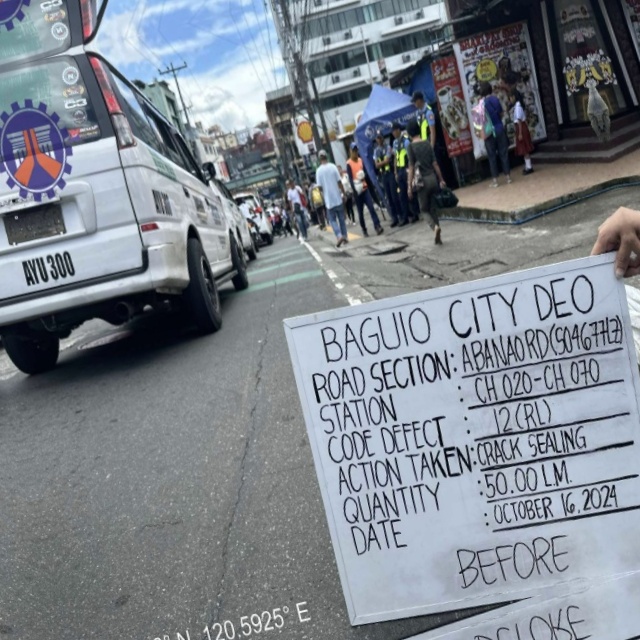 AYU 300
BAGUIO CITY DEO
ROAD SECTION: ABANAO RD(S04677LZ)
STATION : CH 020-CH 070
CODE DEFECT : 12(RL)
ACTION TAKEN: CRACK SEALING
QUANTITY : 50.00 L.M.
DATE : OCTOBER 16, 2024
BEFORE
N, 120.5925° E